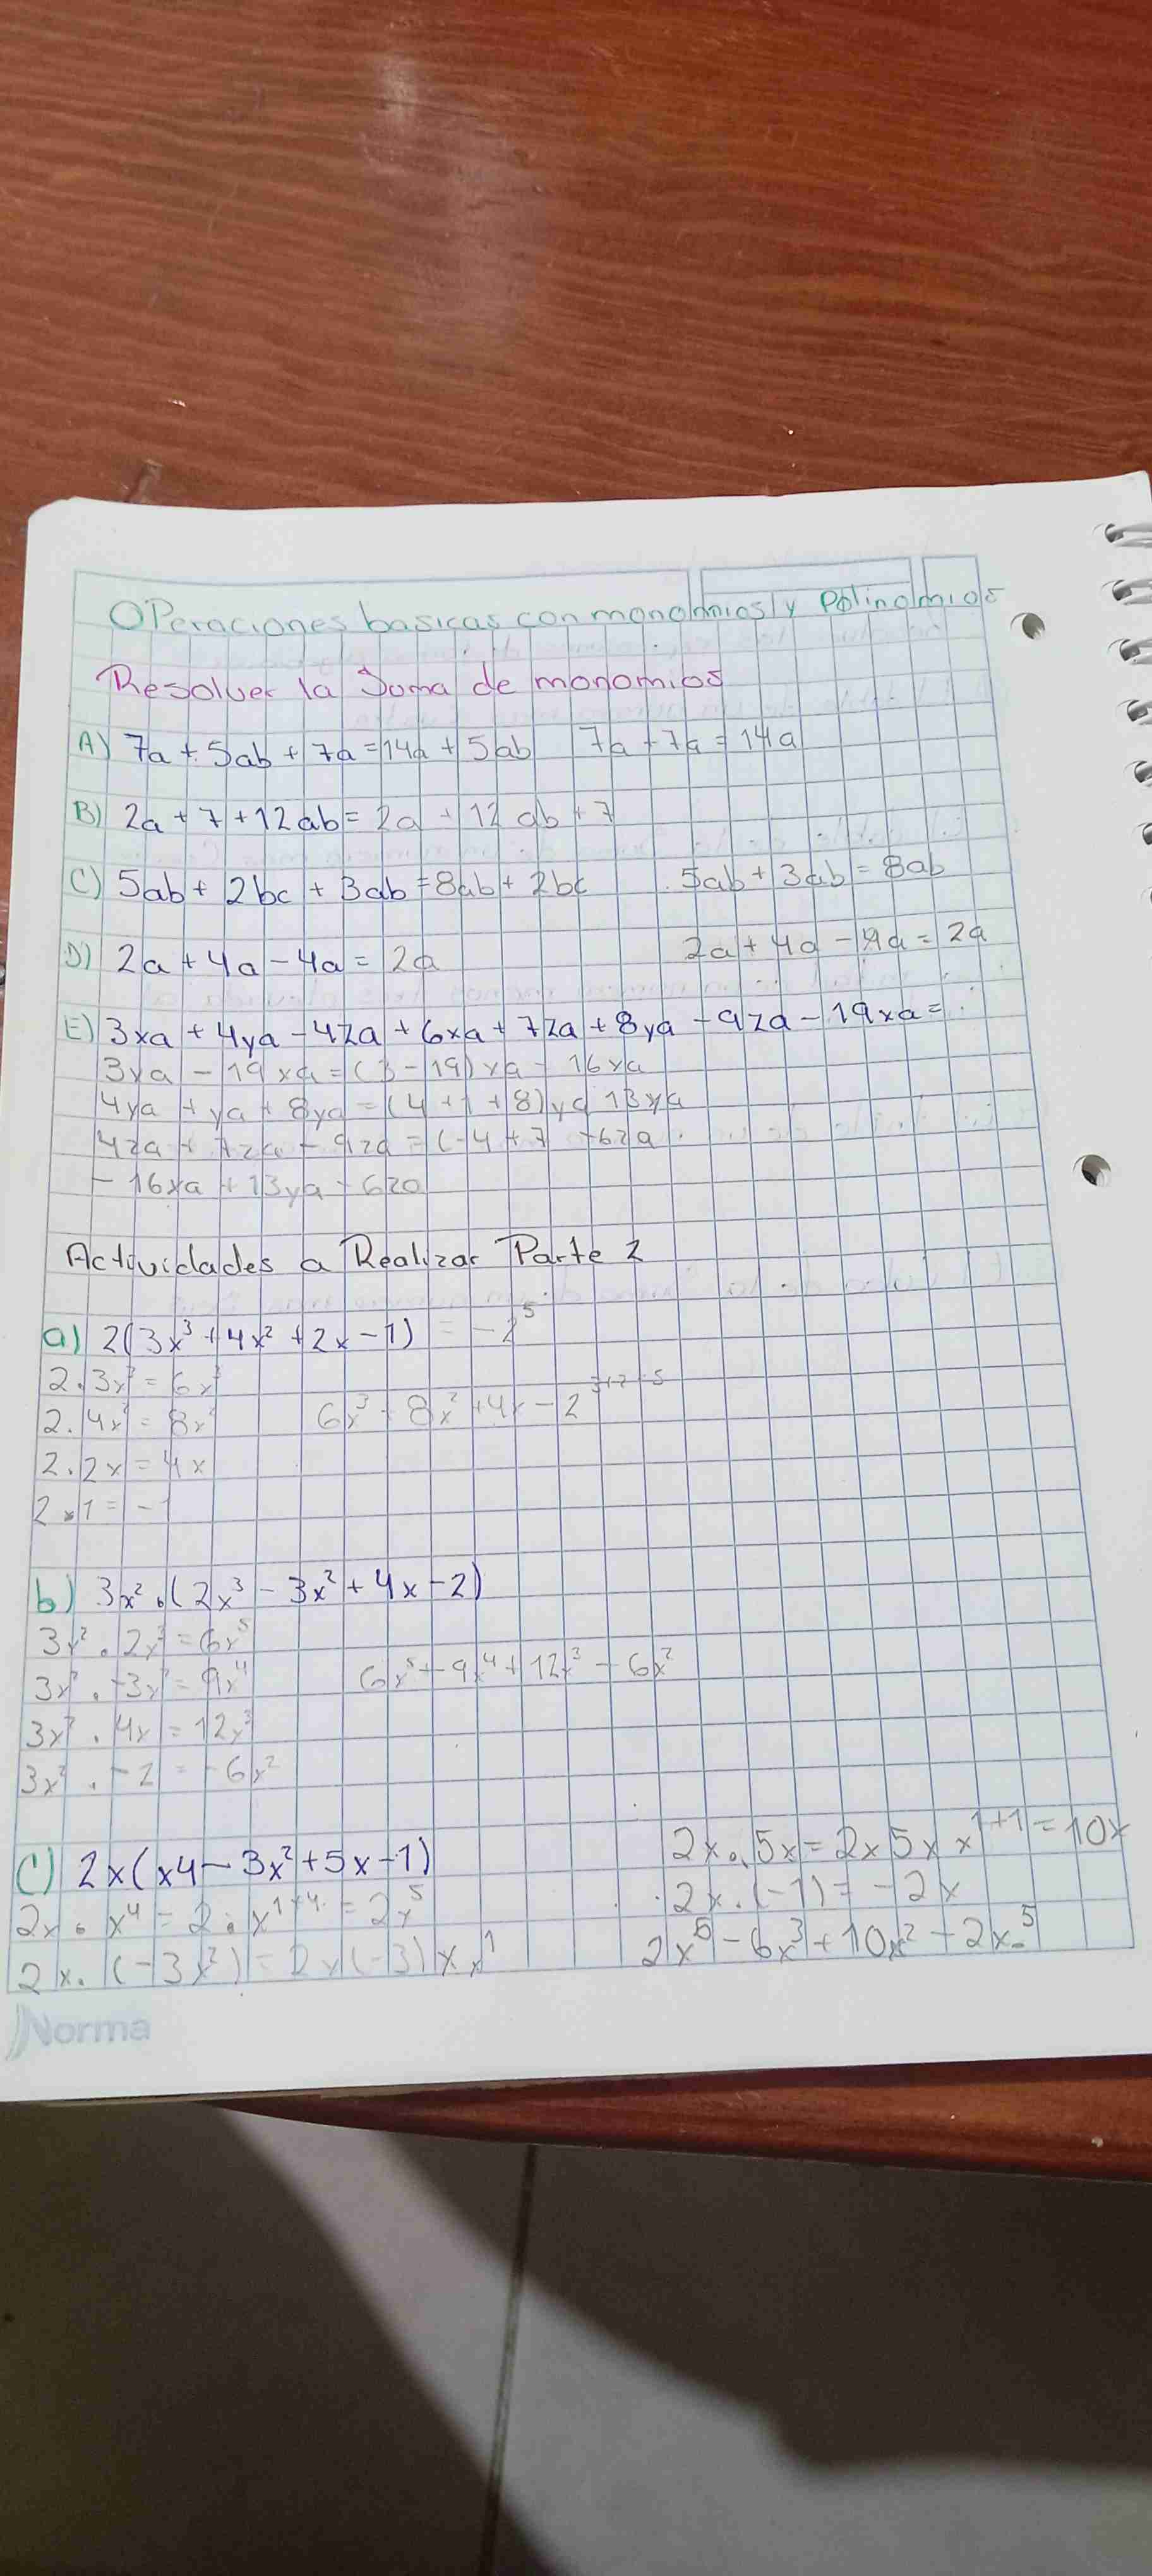 OPeraciones basicas con monomnios y Polinomios
Resolver la Suma de monomios
A) 7a + 5ab + 7a = 14a + 5ab 7a + 7a = 14a
B) 2a + 7 + 12ab = 2a + 12ab + 7
C) 5ab + 2bc + 3ab = 8ab + 2bc 5ab + 3ab = 8ab
D) 2a + 4a - 4a = 2a 2a + 4a - 4a = 2a
E) 3xa + 4ya - 4za + 6xa + 7za + 8ya - 9za - 19xa =
3ya - 19xa = (3 - 19)xa - 16xa
4ya + ya + 8ya = (4 + 1 + 8)ya 13ya
4za + 7za - 9za = (-4 + 7 - 6za
- 16xa + 13ya - 6za
Actividades a Realizar Parte 2
a) 2(3x³ + 4x² + 2x - 1) = -2⁵
2 . 3x³ = 6x³
2 . 4x² = 8x² 6x³ + 8x² + 4x - 2 3+2=5
2 . 2x = 4x
2 x 1 = -1
b) 3x² . (2x³ - 3x² + 4x - 2)
3x² . 2x³ = 6x⁵
3x² . -3x² = 9x⁴ 6x⁵ - 9x⁴ + 12x³ - 6x²
3x² . 4x = 12x³
3x² . -2 = -6x²
C) 2x(x4 - 3x² + 5x - 1) 2x . 5x = 2x5x x¹⁺¹ = 10x
2x . x⁴ = 2 . x¹⁺⁴ = 2x⁵ 2x . (-1) = -2x
2x . (-3x²) = 2x(-3)x x¹ 2x⁵ - 6x³ + 10x² - 2x.⁵
Norma